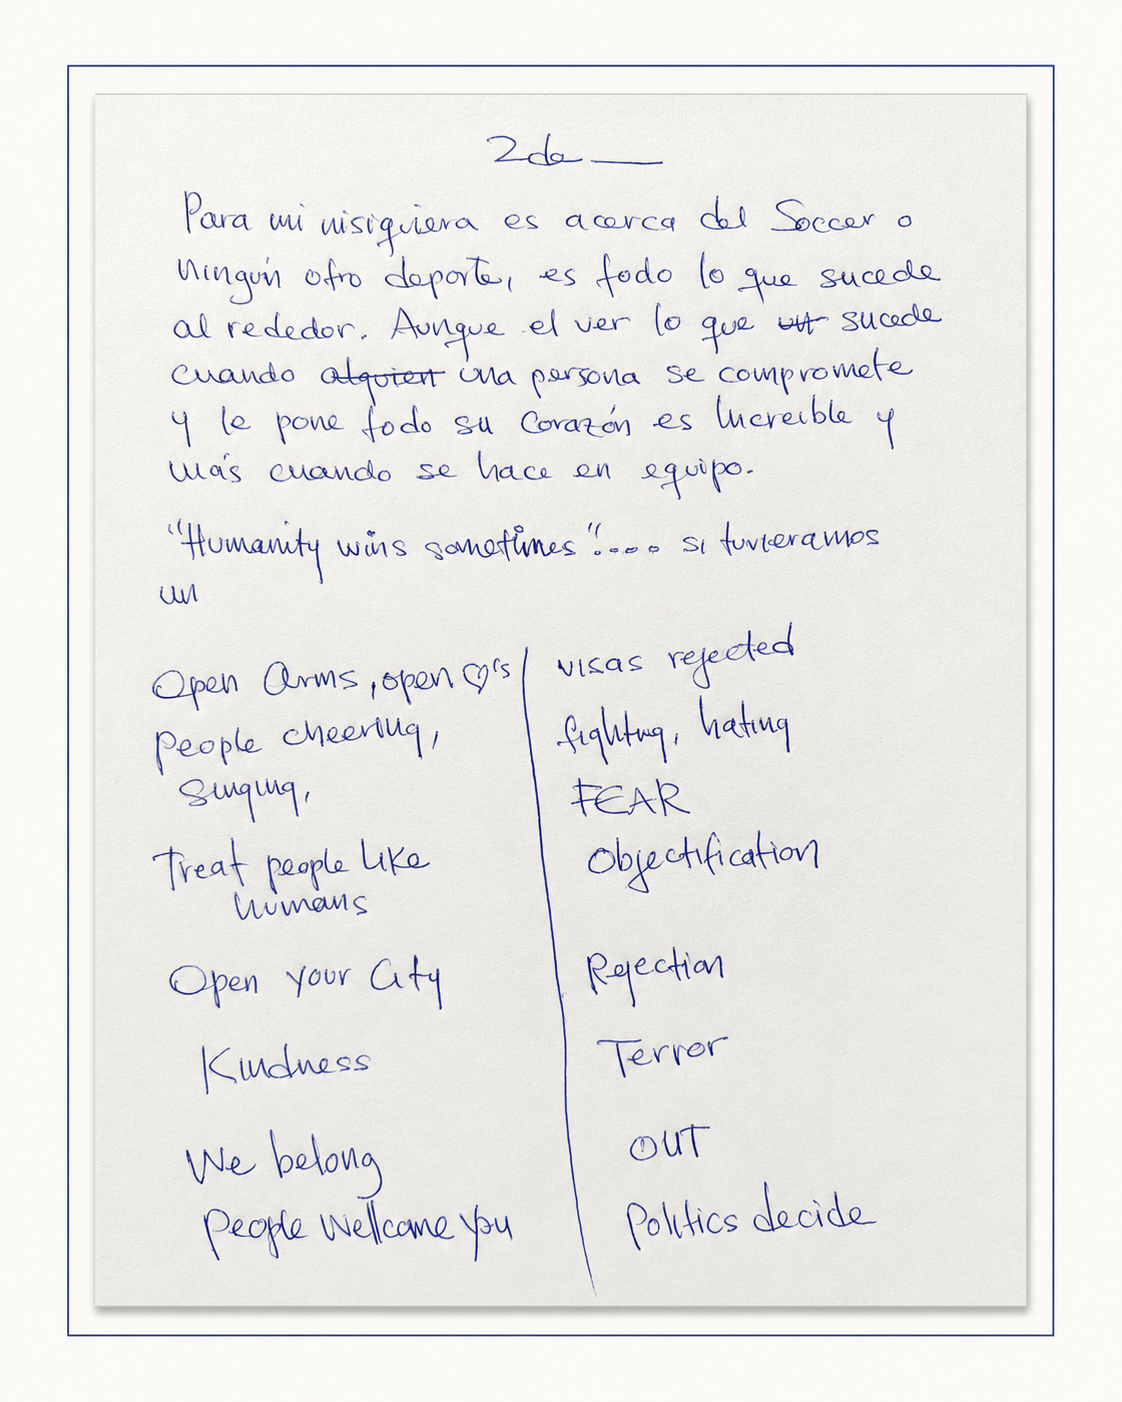 2da ___
Para mi nisiquiera es acerca del Soccer o
ningún otro deporte, es todo lo que sucede
al rededor. Aunque el ver lo que sucede
cuando alguien una persona se compromete
y le pone todo su Corazón es Increible y
más cuando se hace en equipo.
"Humanity wins sometimes".... si tuvieramos
un
Open Arms, open ♡'s
People cheering,
singing,
Treat people like
humans
Open your City
Kindness
We belong
People Wellcome you
visas rejected
fighting, hating
FEAR
Objectification
Rejection
Terror
OUT
Politics decide